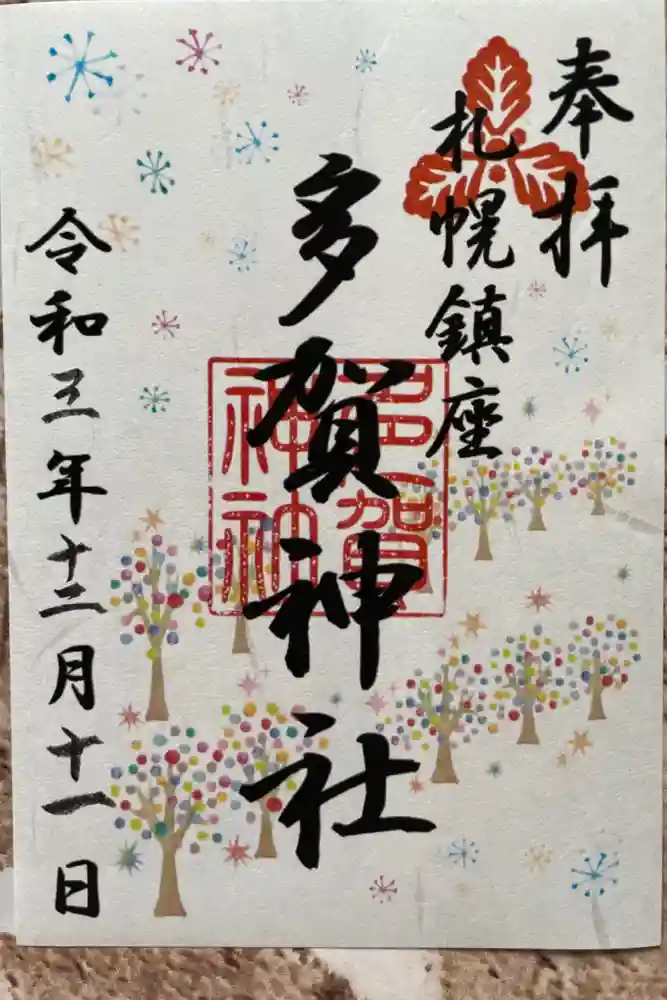 奉拝
札幌鎮座
多賀神社
多賀
神社
令和三年十二月十一日